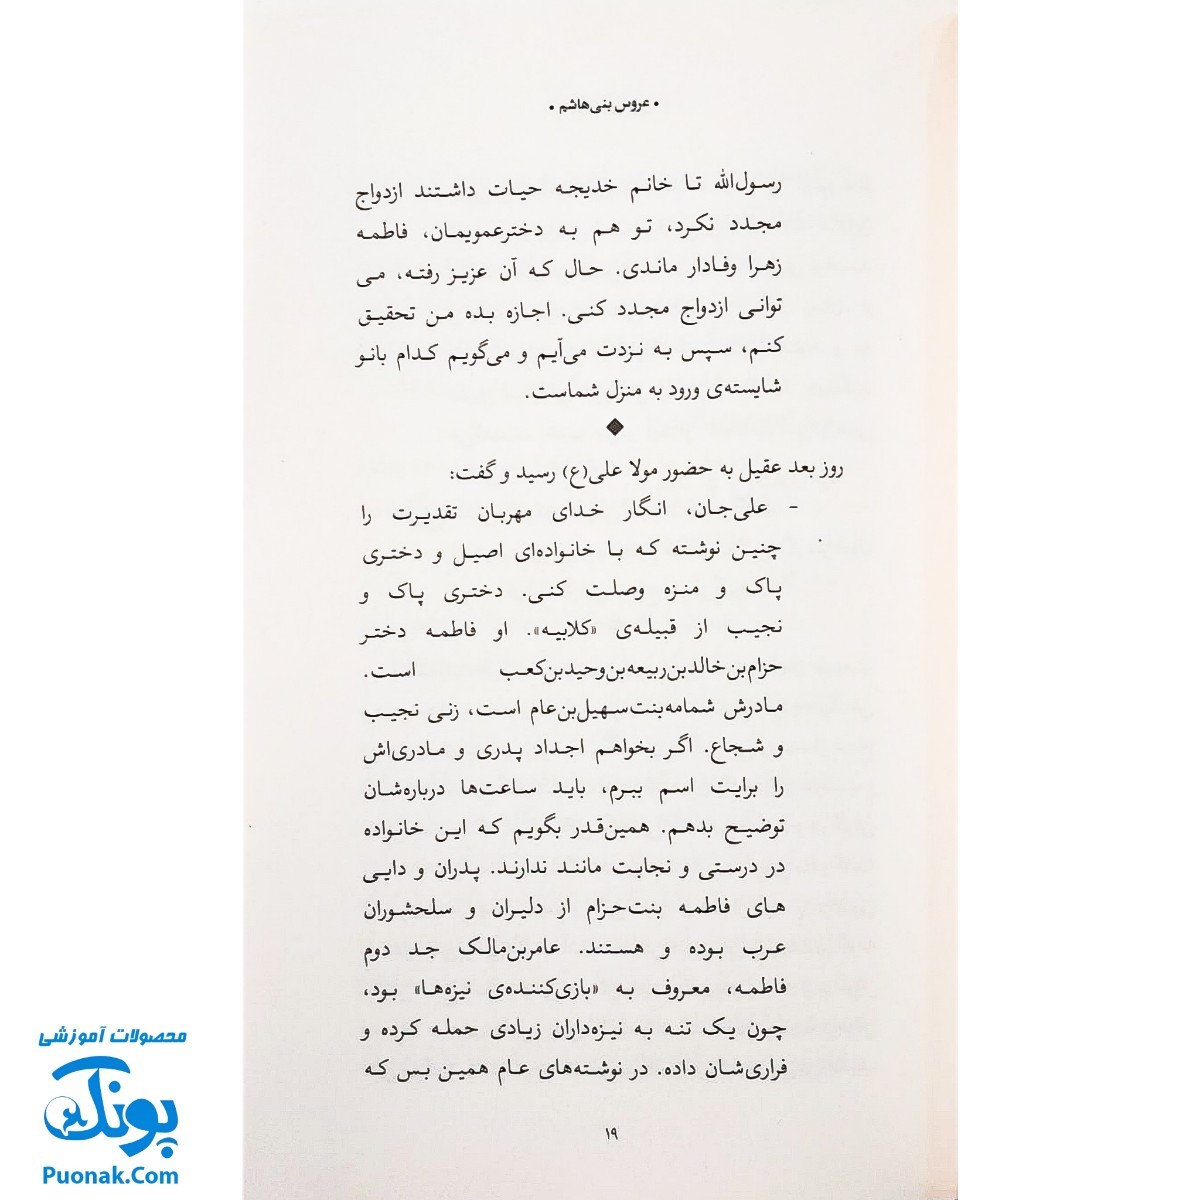 • عروس بنی‌هاشم •
رسول‌الله تا خانم خدیجه حیات داشتند ازدواج
مجدد نکرد، تو هم به دخترعمویمان، فاطمه
زهرا وفادار ماندی. حال که آن عزیز رفته، می
توانی ازدواج مجدد کنی. اجازه بده من تحقیق
کنم، سپس به نزدت می‌آیم و می‌گویم کدام بانو
شایسته‌ی ورود به منزل شماست.
◆
روز بعد عقیل به حضور مولا علی(ع) رسید و گفت:
- علی‌جان، انگار خدای مهربان تقدیرت را
چنین نوشته که با خانواده‌ای اصیل و دختری
پاک و منزه وصلت کنی. دختری پاک و
نجیب از قبیله‌ی «کلابیه». او فاطمه دختر
حزام‌بن‌خالدبن‌ربیعه‌بن‌وحیدبن‌کعب است.
مادرش شمامه‌بنت‌سهیل‌بن‌عام است، زنی نجیب
و شجاع. اگر بخواهم اجداد پدری و مادری‌اش
را برایت اسم ببرم، باید ساعت‌ها درباره‌شان
توضیح بدهم. همین‌قدر بگویم که این خانواده
در درستی و نجابت مانند ندارند. پدران و دایی
های فاطمه بنت‌حزام از دلیران و سلحشوران
عرب بوده و هستند. عامربن‌مالک جد دوم
فاطمه، معروف به «بازی‌کننده‌ی نیزه‌ها» بود،
چون یک تنه به نیزه‌داران زیادی حمله کرده و
فراری‌شان داده. در نوشته‌های عام همین بس که
۱۹
محصولات آموزشی
پونک
Puonak.Com